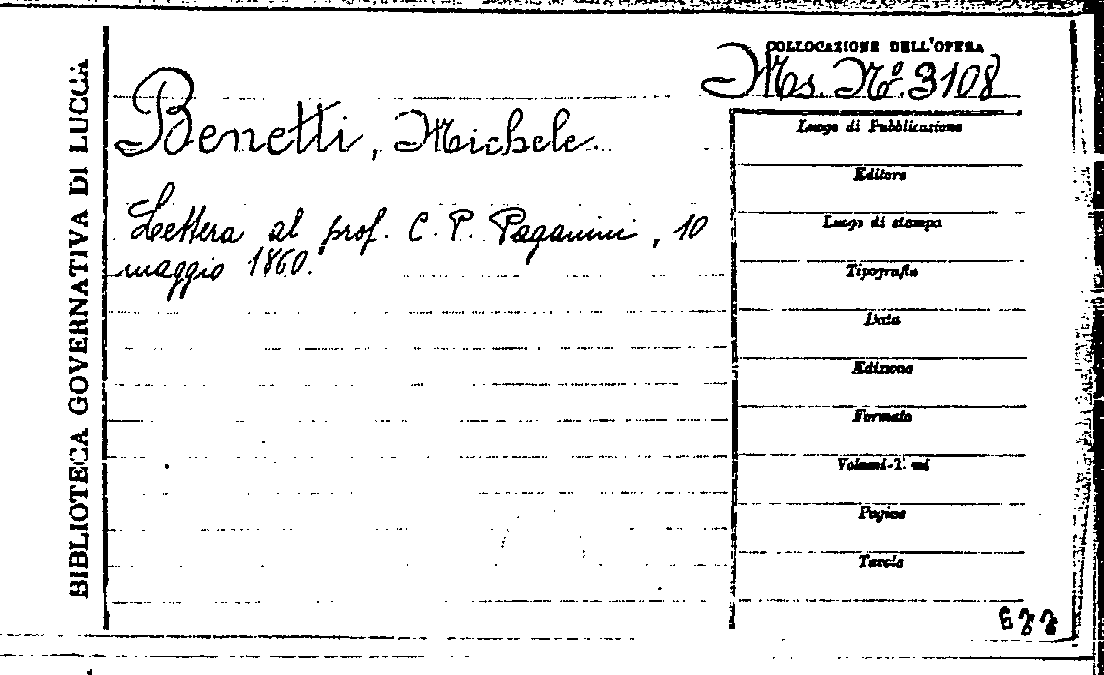 BIBLIOTECA GOVERNATIVA DI LUCCA
COLLOCAZIONE DELL'OPERA
Ms. Nº. 3108
Benetti, Michele.
Lettera al prof. C. P. Paganini, 10
maggio 1860.
Luogo di Pubblicazione
Editore
Luogo di stampa
Tipografia
Data
Edizione
Formato
Volumi-T. mi
Pagine
Tavole